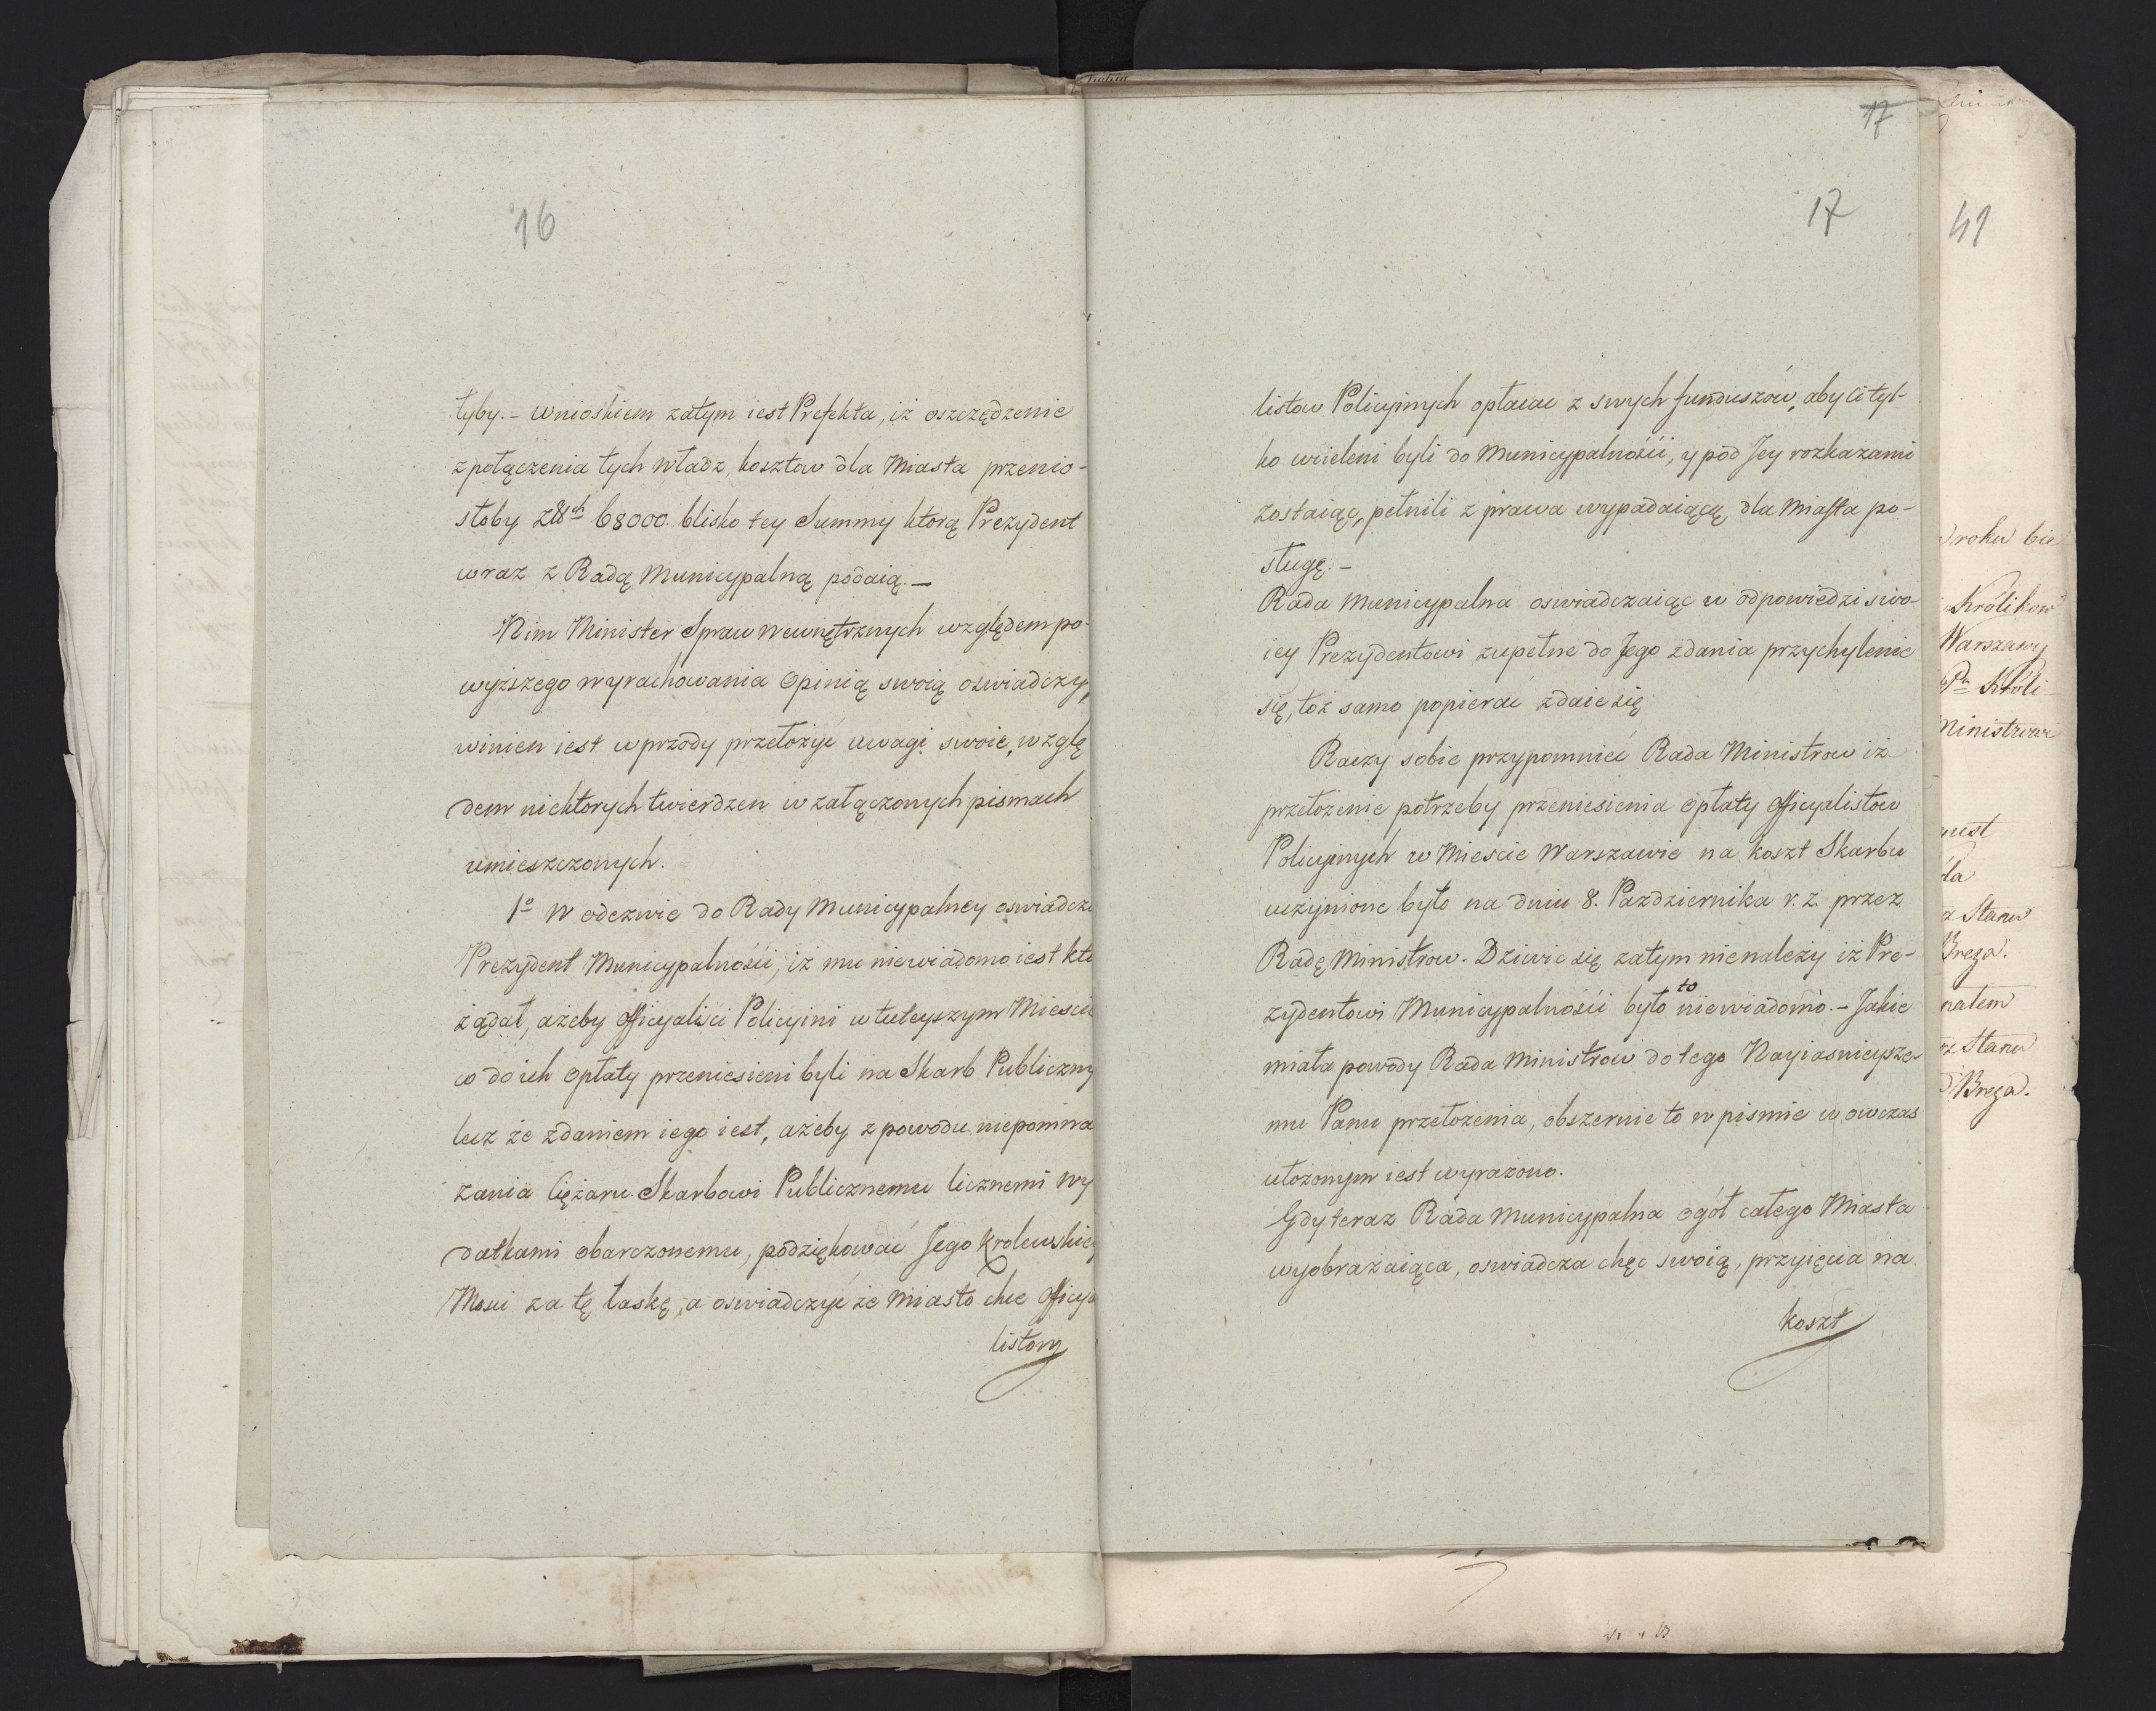 16
łyby. – Wnioskiem zatym iest Prefekta, iż oszczędzenie
z połączenia tych Władz, kosztow dla Miasta przenio-
słoby Złł<sup>ch</sup> 68000. blisko tey Summy ktorą Prezydent
wraz z Radą Municypalną podaią. –
Nim Minister Spraw Wewnętrznych względem po-
wyższego wyrachowania Opinią swoią oswiadczy,
winien iest wprzody przełożyć uwagi swoie, wzglę
dem niektorych twierdzen w załączonych pismach
umieszczonych.
1<sup>o</sup> W odezwie do Rady Municypalney oswiadcza
Prezydent Municypalności, iż mu niewiadomo iest kto
żądał, ażeby Officyaliści Policyini w tuteyszym Miescie
co do ich Opłaty przeniesieni byli na Skarb Publiczny
lecz że zdaniem iego iest, ażeby z powodu niepomna
żania Ciężaru Skarbowi Publicznemu licznemi Wy
datkami obarczonemu, podziękować Jego Krolewskiey
Mosci za tę łaskę, a oswiadczyć że Miasto chce Officya
listow
17
17
listow Policyinych opłacac z swych funduszów, aby ci tyl-
ko wcieleni byli do Municypalności, y pod Jey rozkazami
zostaiąc, pełnili z prawa wypadaiącą dla Miasta po-
sługę. –
Rada Municypalna oswiadczaiąc w odpowiedzi swo-
iey Prezydentowi zupełne do Jego zdania przychylenie
się, toż samo popierać zdaie się
Raczy sobie przypomnieć Rada Ministrow iż
przełożenie potrzeby przeniesienia Opłaty Officyalistow
Policyinych w Miescie Warszawie na koszt Skarbu
uczynione było na dniu 8. Pazdziernika r. z. przez
Radę Ministrow. Dziwić się zatym nienależy iż Pre-
zydentowi Municypalności było to niewiadomo. – Jakie
miała powody Rada Ministrow do tego Nayiasnieysze-
mu Panu przełożenia, obszernie to w pismie w owczas
ułożonym iest wyrażono.
Gdy teraz Rada Municypalna ogół całego Miasta
wyobrażaiąca, oswiadcza chęc swoią, przyięcia na
koszt
41
roku bie
Królikow
Warszawy
Króli
Ministrow
la
Stanu
Breza.
natem
Stanu
Breza.